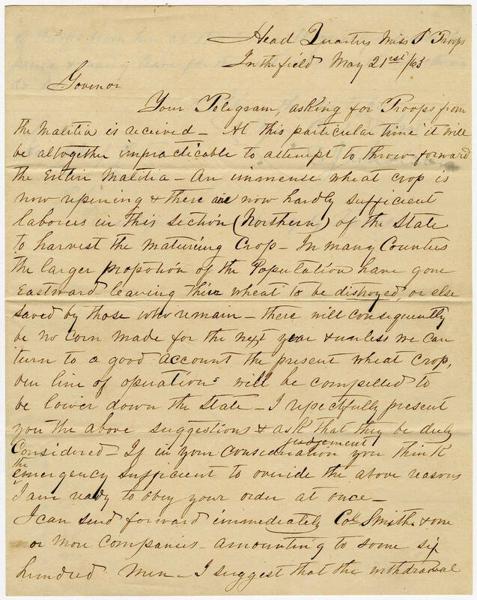 Head Quarters Miss S Troops
In the field May 21st/63
Govenor
Your Telegram, asking for Troops from
the Malitia is received - At this particular time it will
be altogether impracticable to attempt to throw forward
the Entire Malitia - An immense wheat crop is
now ripening & there are now hardly sufficient
laborers in this section (Northern) of the State
to harvest the maturing Crop - In many Counties
the larger propotion of the Population have gone
Eastward leaving their wheat to be distroyed, or else
saved by those who remain - there will consequently
be no corn made for the next year & unless we can
turn to a good account the present wheat crop,
our line of operations will be compelled to
be lower down the State - I respectfully present
you the above suggestions & ask that they be duly
Considered - If in your judgement you think
the emergency sufficient to overide the above reasons
I am ready to obey your order at once -
I can send forward immediately Col. Smith & one
or more Companies - amounting to some six
hundred men - I suggest that the withdrawal